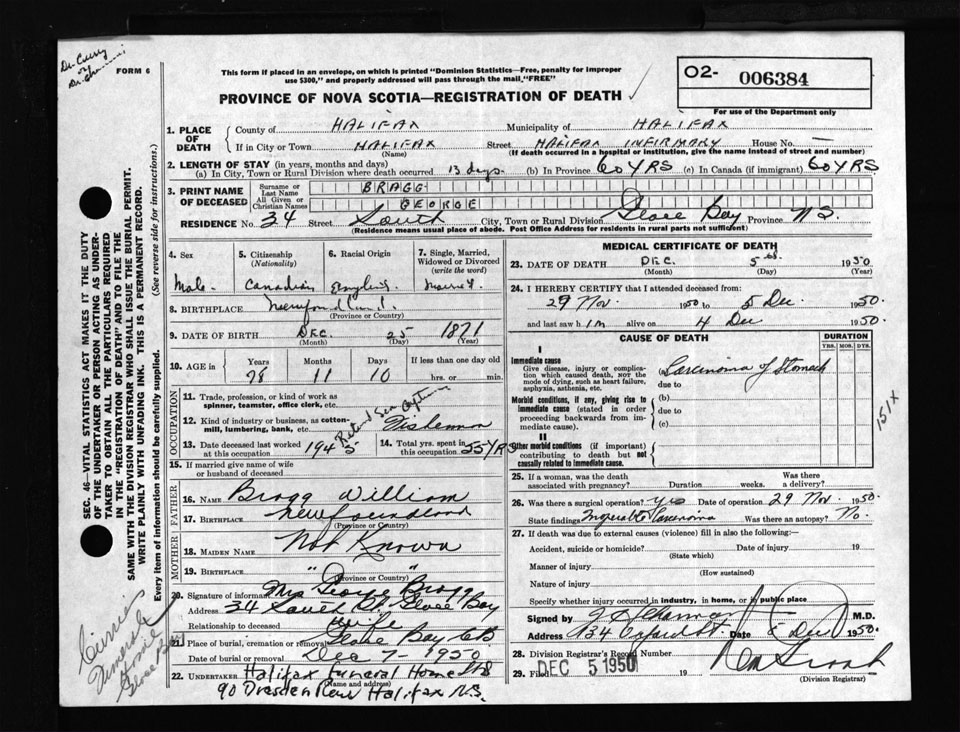 Dr. Curry
or
FORM 6
This form if placed in an envelope, on which is printed "Dominion Statistics—Free, penalty for improper
use $300," and properly addressed will pass through the mail, "FREE"
PROVINCE OF NOVA SCOTIA—REGISTRATION OF DEATH ✓
O2- 006384
For use of the Department only
1. PLACE OF DEATH { County of HALIFAX Municipality of HALIFAX
If in City or Town HALIFAX (Name) Street HALIFAX INFIRMARY House No. —
(If death occurred in a hospital or institution, give the name instead of street and number)
2. LENGTH OF STAY (in years, months and days)
(a) In City, Town or Rural Division where death occurred 13 days. (b) In Province 60 YRS (c) In Canada (if immigrant) 60 YRS
3. PRINT NAME OF DECEASED { Surname or Last Name BRAGG
All Given or Christian Names GEORGE
RESIDENCE No. 34 Street South City, Town or Rural Division Glace Bay Province N.S.
(Residence means usual place of abode. Post Office Address for residents in rural parts not sufficient)
4. Sex Male
5. Citizenship (Nationality) Canadian
6. Racial Origin English
7. Single, Married, Widowed or Divorced (write the word)
8. BIRTHPLACE Newfoundland
(Province or Country)
9. DATE OF BIRTH DEC. (Month) 25 (Day) 1871 (Year)
10. AGE in { Years 78 Months 11 Days 10 If less than one day old hrs. or min.
OCCUPATION
11. Trade, profession, or kind of work as spinner, teamster, office clerk, etc. Retired Sea Captain
12. Kind of industry or business, as cotton-mill, lumbering, bank, etc. Fisherman
13. Date deceased last worked at this occupation 1945
14. Total yrs. spent in this occupation 55 YRS
15. If married give name of wife or husband of deceased
FATHER
16. NAME Bragg William
17. BIRTHPLACE Newfoundland
(Province or Country)
MOTHER
18. MAIDEN NAME Not Known
19. BIRTHPLACE " "
(Province or Country)
20. Signature of informant Mrs George Bragg
Address 34 South St. Glace Bay
Relationship to deceased wife
21. Place of burial, cremation or removal Glace Bay CB
Date of burial or removal Dec 7 - 1950
22. UNDERTAKER Halifax Funeral Home Ltd
(Name and address)
90 Dresden Row Halifax N.S.
MEDICAL CERTIFICATE OF DEATH
23. DATE OF DEATH DEC. (Month) 5th (Day) 1950 (Year)
24. I HEREBY CERTIFY that I attended deceased from:
29 Nov. 1950 to 5 Dec 1950
and last saw him alive on 4 Dec 1950.
CAUSE OF DEATH
DURATION
YRS. MOS. DYS.
I
Immediate cause
Give disease, injury or complication which caused death, NOT the mode of dying, such as heart failure, asphyxia, asthenia, etc.
(a) Carcinoma of Stomach
due to
Morbid conditions, if any, giving rise to immediate cause (stated in order proceeding backwards from immediate cause).
(b)
due to
(c)
151X
II
Other morbid conditions (if important) contributing to death but not causally related to immediate cause.
25. If a woman, was the death associated with pregnancy? Duration weeks. Was there a delivery?
26. Was there a surgical operation? yes Date of operation 29 Nov. 1950.
State findings Inoperable Carcinoma Was there an autopsy? No.
27. If death was due to external causes (violence) fill in also the following:
Accident, suicide or homicide? Date of injury 19
(State which)
Manner of injury
(How sustained)
Nature of injury
Specify whether injury occurred in industry, in home, or in public place
Signed by M.D.
Address 134 Oxford St. Date 5 Dec 1950.
28. Division Registrar's Record Number
29. Filed DEC 5 1950 19
(Division Registrar)
SEC. 46—VITAL STATISTICS ACT MAKES IT THE DUTY
OF THE UNDERTAKER OR PERSON ACTING AS UNDERTAKER TO OBTAIN ALL THE PARTICULARS REQUIRED
IN THE "REGISTRATION OF DEATH" AND TO FILE THE
SAME WITH THE DIVISION REGISTRAR WHO SHALL ISSUE THE BURIAL PERMIT.
WRITE PLAINLY WITH UNFADING INK. THIS IS A PERMANENT RECORD.
Every item of information should be carefully supplied. (See reverse side for instructions.)
Funeral
Home
Glace Bay